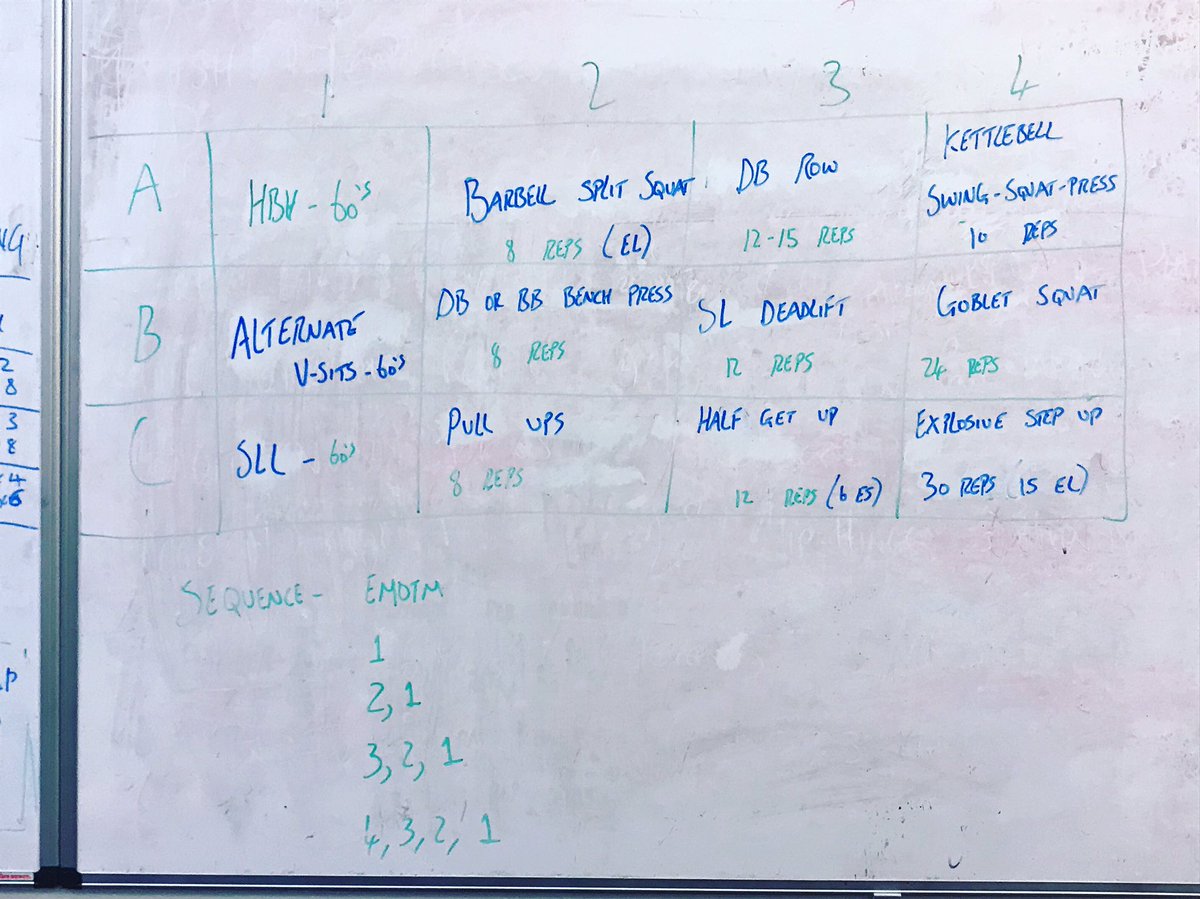 1 2 3 4
A
HBH - 60's
BARBELL SPLIT SQUAT
8 REPS (EL)
DB ROW
12-15 REPS
KETTLEBELL
SWING-SQUAT-PRESS
10 REPS
B
ALTERNATE
V-SITS - 60's
DB OR BB BENCH PRESS
8 REPS
SL DEADLIFT
12 REPS
GOBLET SQUAT
24 REPS
C
SLL - 60's
PULL UPS
8 REPS
HALF GET UP
12 REPS (6 ES)
EXPLOSIVE STEP UP
30 REPS (15 EL)
SEQUENCE - EMOTM
1
2, 1
3, 2, 1
4, 3, 2, 1
NG
2
8
3
8
4
6
P